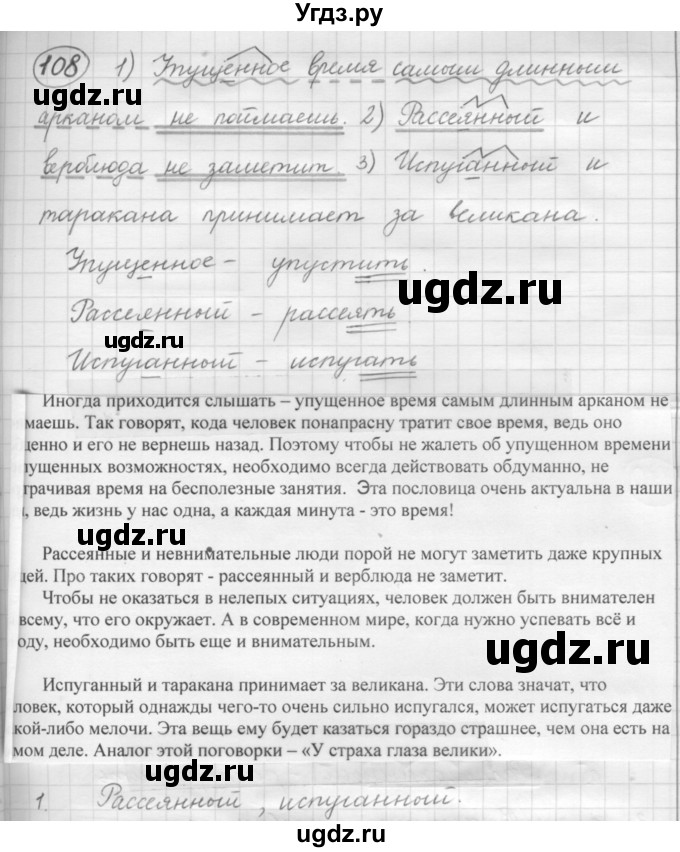 Угдз.ру
108 1) Упущенное время самым длинным
арканом не поймаешь. 2) Рассеянный и
верблюда не заметит. 3) Испуганный и
таракана принимает за великана.
Упущенное - упустить.
Рассеянный - рассеять.
Испуганный - испугать
Иногда приходится слышать – упущенное время самым длинным арканом не
маешь. Так говорят, кода человек понапрасну тратит свое время, ведь оно
ценно и его не вернешь назад. Поэтому чтобы не жалеть об упущенном времени
пущенных возможностях, необходимо всегда действовать обдуманно, не
трачивая время на бесполезные занятия. Эта пословица очень актуальна в наши
, ведь жизнь у нас одна, а каждая минута - это время!
Рассеянные и невнимательные люди порой не могут заметить даже крупных
щей. Про таких говорят - рассеянный и верблюда не заметит.
Чтобы не оказаться в нелепых ситуациях, человек должен быть внимателен
всему, что его окружает. А в современном мире, когда нужно успевать всё и
оду, необходимо быть еще и внимательным.
Испуганный и таракана принимает за великана. Эти слова значат, что
ловек, который однажды чего-то очень сильно испугался, может испугаться даже
кой-либо мелочи. Эта вещь ему будет казаться гораздо страшнее, чем она есть на
мом деле. Аналог этой поговорки – «У страха глаза велики».
1. Рассеянный, испуганный.
ugdz.ru
ugdz.ru
ugdz.ru
ugdz.ru
ugdz.ru
ugdz.ru
ugdz.ru
ugdz.ru